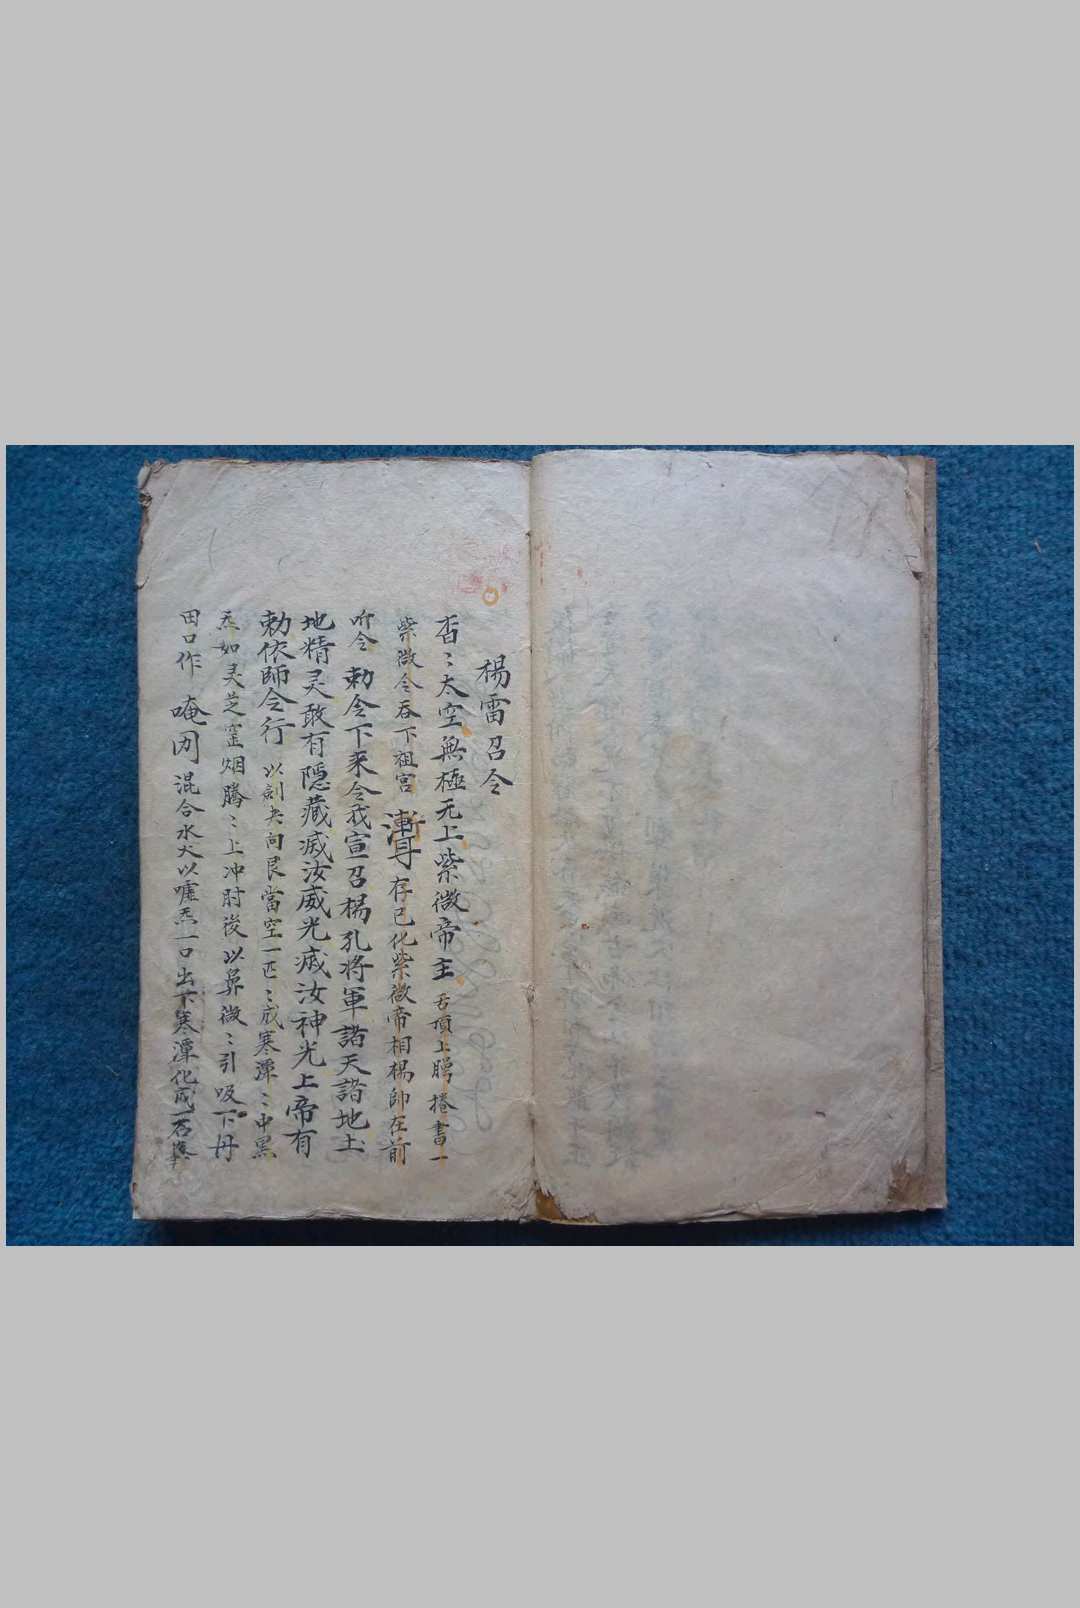 楊雷召令
杳〻太空無極元上紫微帝主舌頂上腭捲書一
紫微令吞下祖宮存已化紫微帝相楊帥在前
听令勅令下来令我宣召楊孔將軍諸天諸地土
地精灵敢有隱藏滅汝威光滅汝神光上帝有
勅依師令行以劍夬向艮當空一匹〻成寒潭〻中黑
炁如灵芝烟騰〻上冲肘後以鼻微〻引吸下丹
田口作唵混合水火以嘘炁一口出下寒潭化成一石